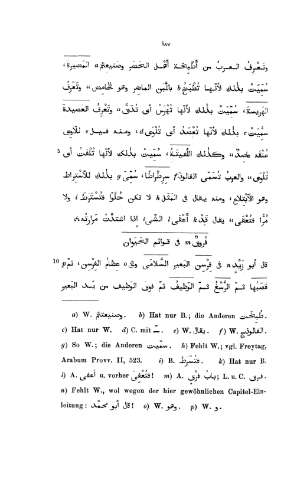 ١٨٧
وتَعْرِفُ العرب من أَطْبِخَةِ أَهْل الحَضَر وصَنيعِتهمa المَضيرة،
سُمِّيَتْ بذلك لأنّها تُطْبَخُb باللَّبَن الماضِر وهو الحامِض، وتَعْرِف
الهَريسة، سُمِّيت بذلك لأنّها تُهْرَس أى تُدَقُّ، وتَعْرِف العصيدة
سمّيت بذلك لأنّها تُعْصَد أى تُلْوَى، ومنه قيل للّاوِى
5 عُنُقَه عاصِدٌ، وكذلك اللَّفيتةُ، سمّيت بذلك لأنّها تُلْفَت أى
تُلْوَى، والعرب تُسَمّى الفالوذَf سِرِطْراطًا، سمّىg بذلك للأستراط
وهو الأبتلاع، ومنه يقال فى المَثَلِh لا تكن حُلْوًا فتُسْتَرَطَi ولا
مُرًّا فتُعْقَى، يقال قدk أَعْقَىl الشَّىءُ اذا اشتدّت مَرارتُه،
فُروقٌm فى قوائم الحَيَوان
10 قال أبو زَيْدn فى فِرْسِن البَعير السُّلامَى وهىo عظام الفِرْسِن، ثمّp
قَصَبُها ثمّ الرُّسْغ ثمّ الوَظيف ثمّ فوق الوَظيف من يد البعير
a) W. وصنيعتهم. b) Hat nur B.; die Anderen طُبِخَتْ.
c) Hat nur W. d) C. mit ـَـ. e) W. يقال. f) W. الفالوذج.
g) So W.; die Anderen سمّيت. h) Fehlt W.; vgl. Freytag,
Arabum Provv. II, 523. i) B. فتسرط. k) Hat nur B.
l) A. أعفى u. vorher فتُعْفَى! m) A. باب فَرْق; L. u. C. فرق.
n) Fehlt W., wol wegen der hier gewöhnlichen Capitel-Ein-
leitung: قال أبو محمّد! o) W. وهو. p) W. و.